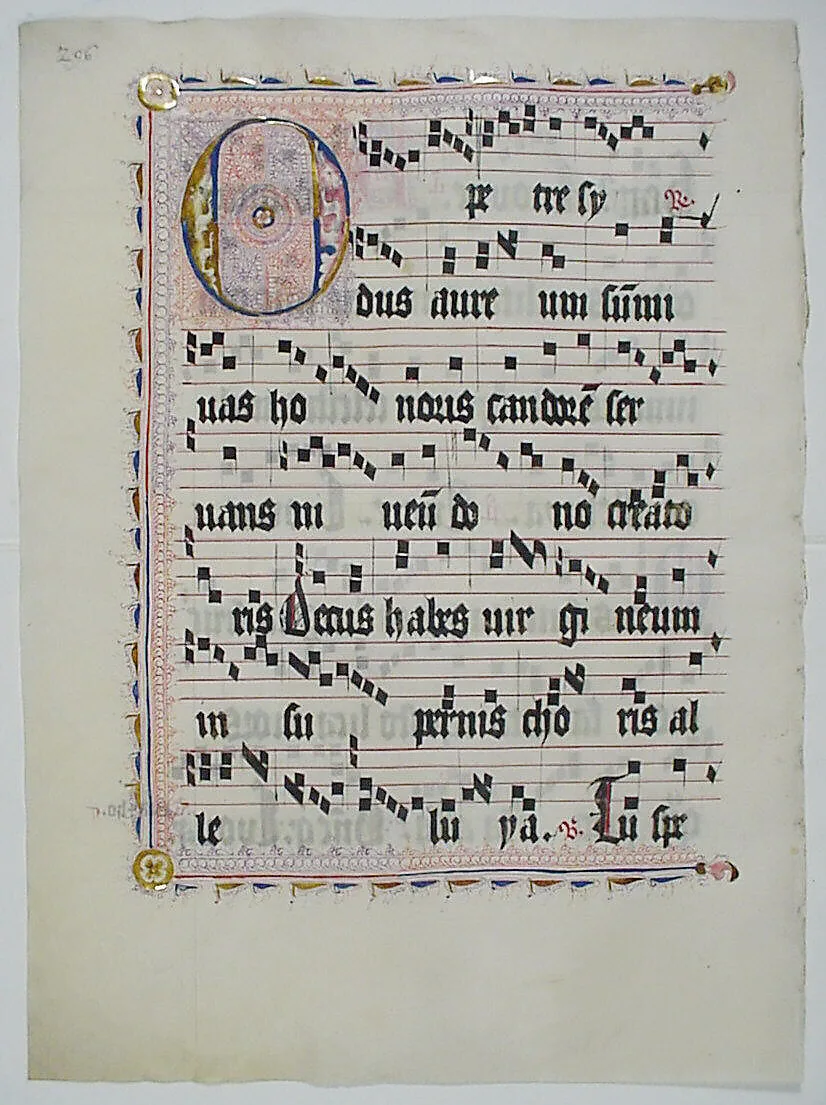 206
O pe tre sy R.
dus aure um sūmi
uas ho noris candorē ser
uans in ueū do no creato
ris Decus habes uir gi neum
in su pernis cho ris al
le lu ya. V. Tu spe